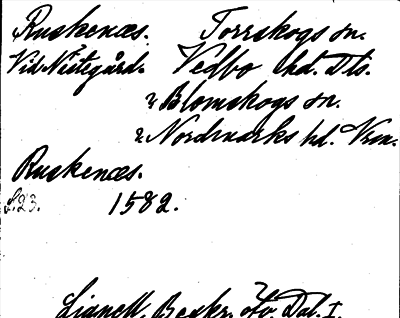 Ruskenæs. Torrskogs sn.
Vid Nästegård. Vedbo hd. Dls.
& Blomskogs sn.
& Nordmarks hd. Vrm.
Ruskenæs.
f. 23. 1582.
Lignell, Beskr. öv. Dal. I.